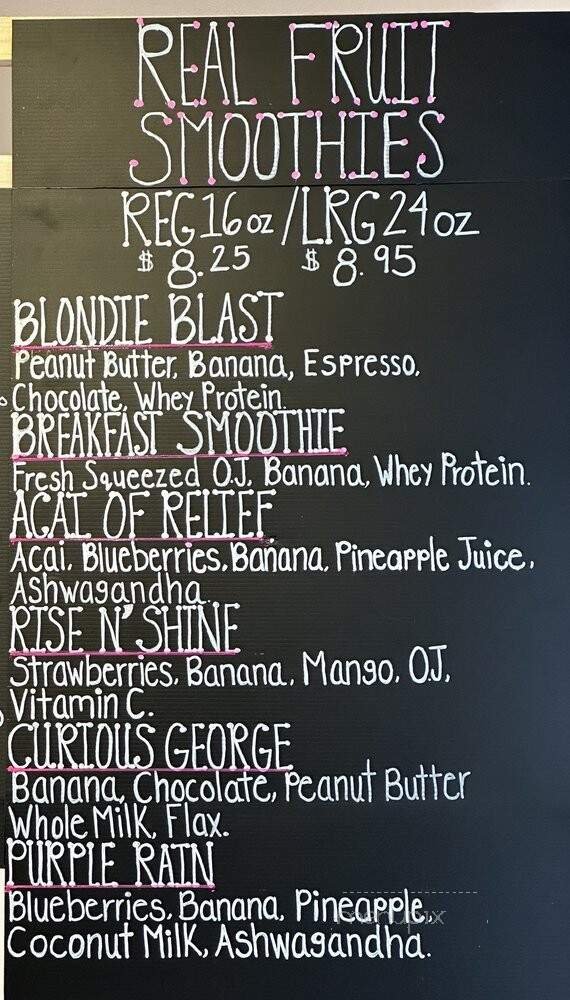 REAL FRUIT
SMOOTHIES
REG 16oz / LRG 24oz
$8.25 $8.95
BLONDIE BLAST
Peanut Butter, Banana, Espresso,
Chocolate, Whey Protein
BREAKFAST SMOOTHIE
Fresh Squeezed O.J, Banana, Whey Protein.
ACAI OF RELIEF
Acai, Blueberries, Banana, Pineapple Juice,
Ashwagandha.
RISE N' SHINE
Strawberries, Banana, Mango, OJ,
Vitamin C.
CURIOUS GEORGE
Banana, Chocolate, Peanut Butter
Whole Milk, Flax.
PURPLE RAIN
Blueberries, Banana, Pineapple,
menupix
Coconut Milk, Ashwagandha.